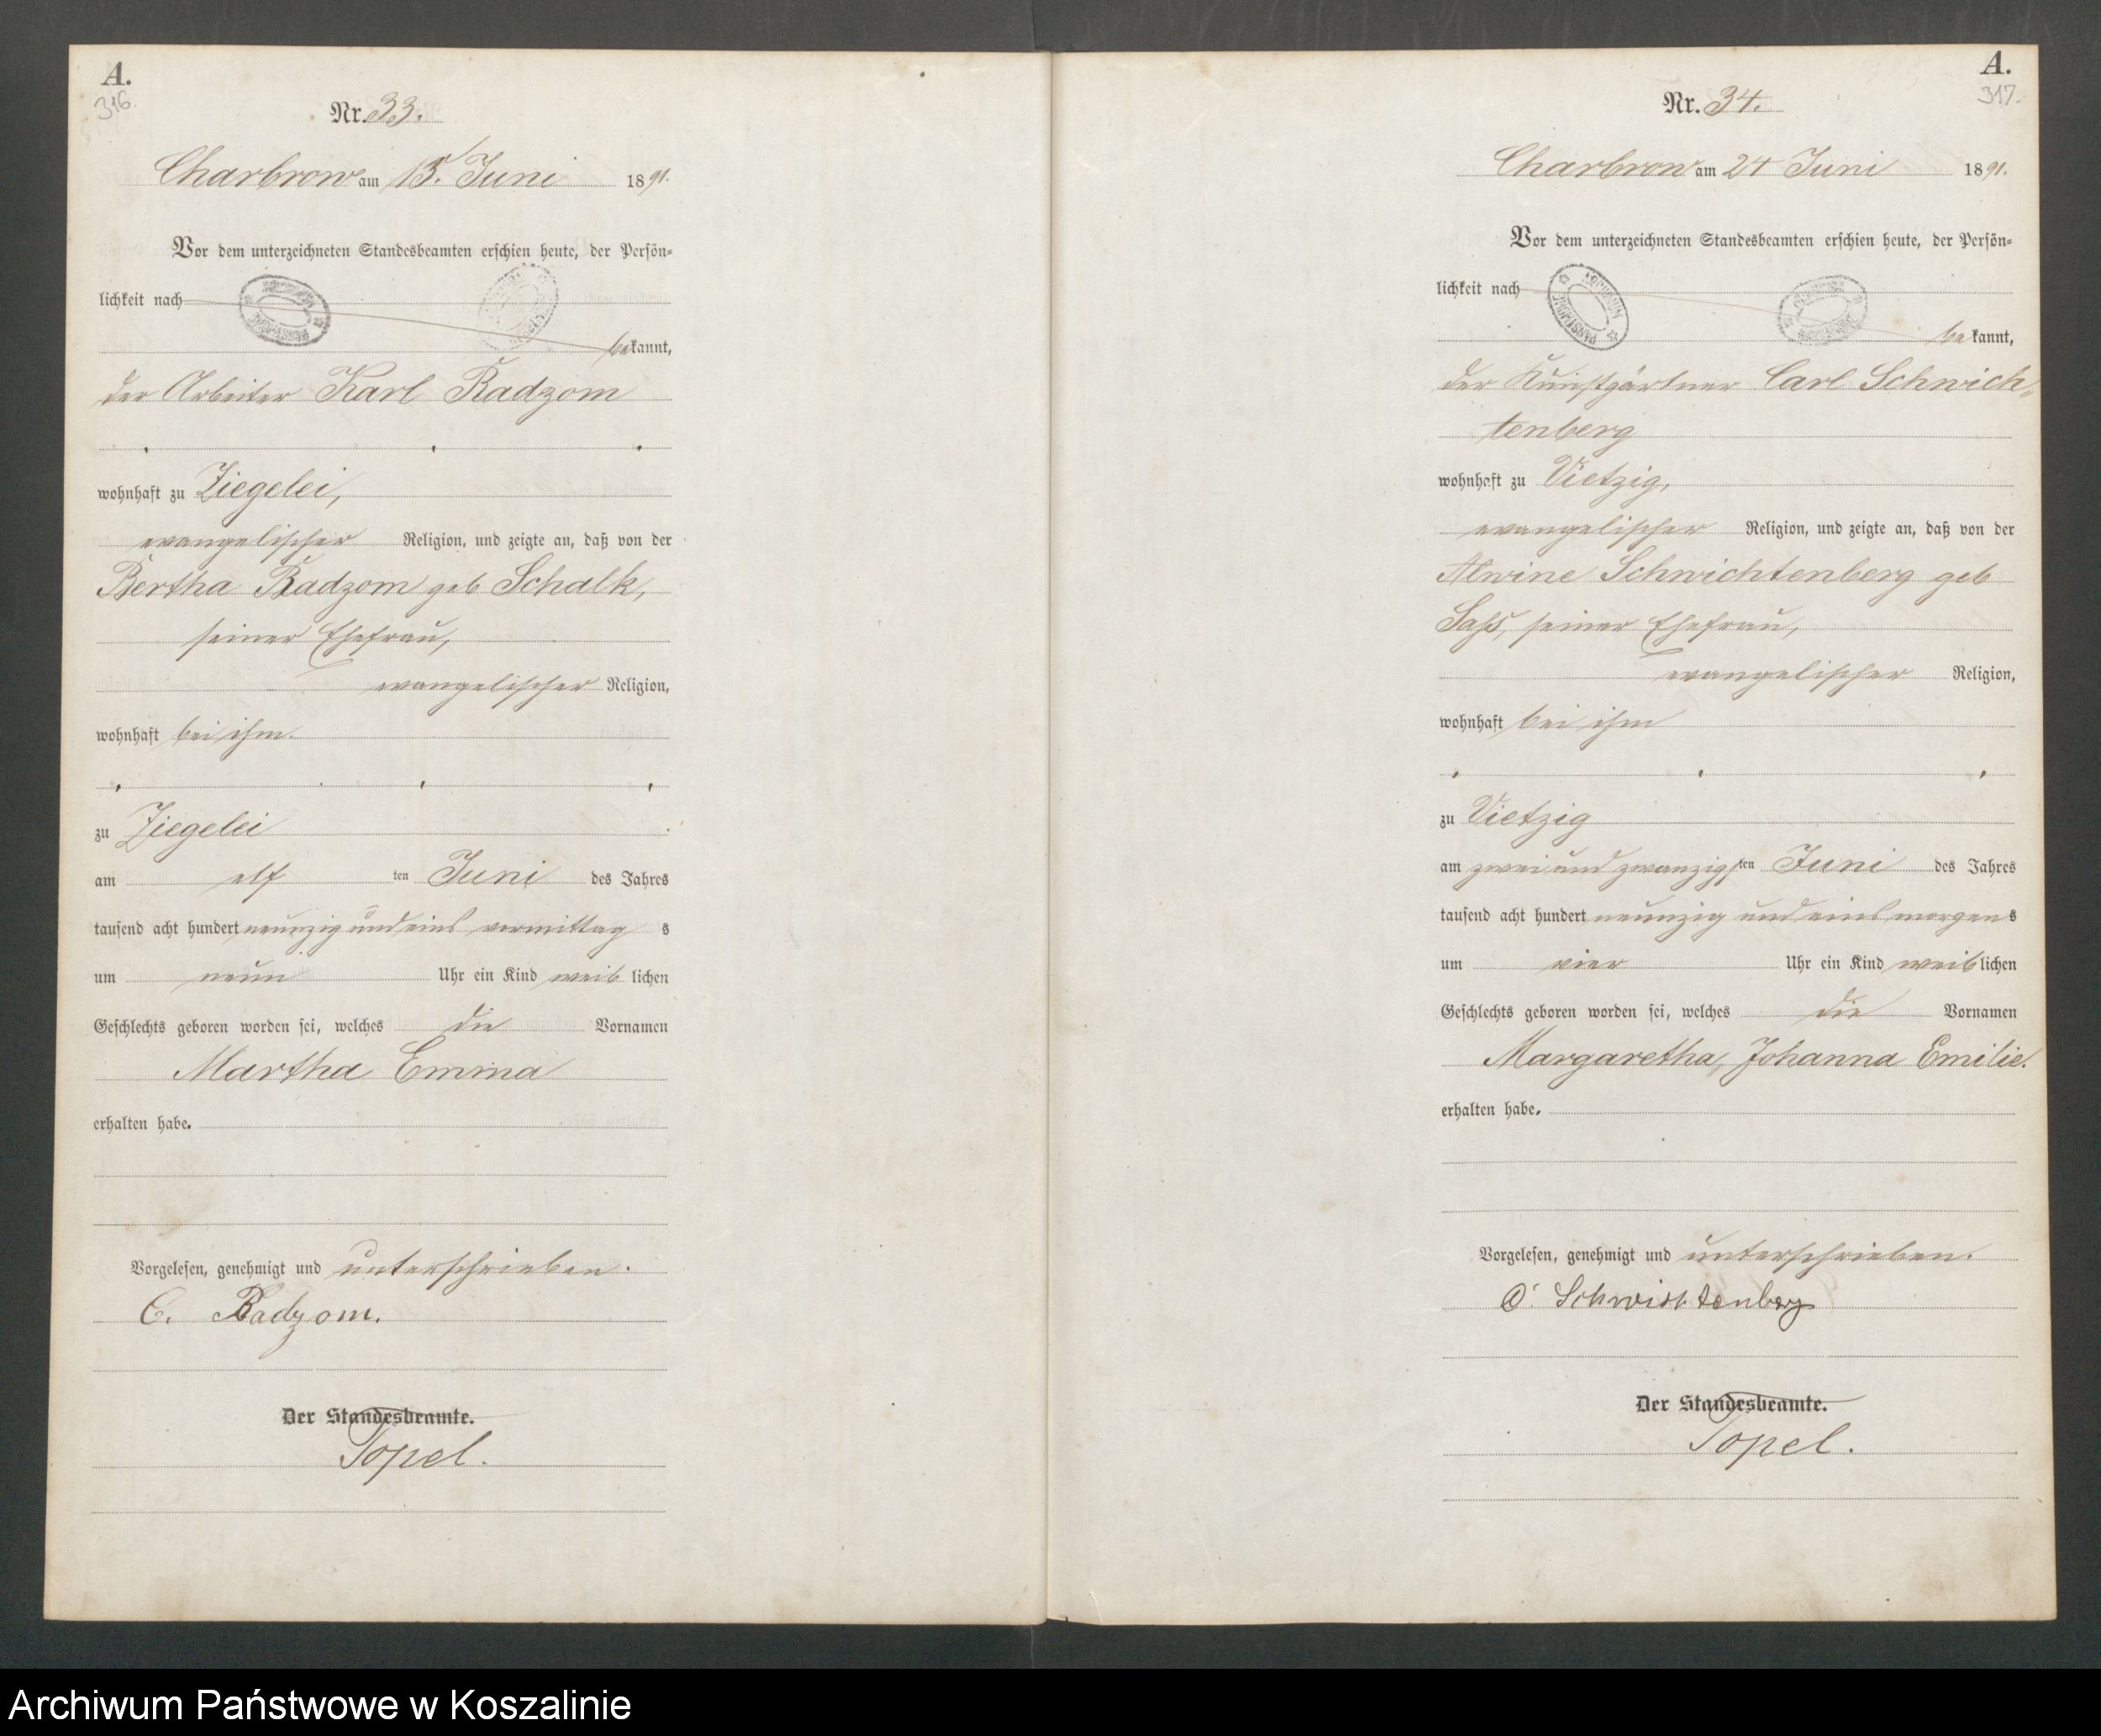 A.
316.
Nr. 33.
Charbrow am 15. Juni 1891.
Vor dem unterzeichneten Standesbeamten erschien heute, der Persön-
lichkeit nach
bekannt,
der Arbeiter Karl Radzom
wohnhaft zu Ziegelei,
evangelischer Religion, und zeigte an, daß von der
Bertha Radzom geb Schalk,
seiner Ehefrau,
evangelischer Religion,
wohnhaft bei ihm.
zu Ziegelei
am elf ten Juni des Jahres
tausend acht hundert neunzig und eins vormittag s
um neun Uhr ein Kind weiblichen
Geschlechts geboren worden sei, welches die Vornamen
Martha Emma
erhalten habe.
Vorgelesen, genehmigt und unterschrieben.
C. Radzom.
Der Standesbeamte.
Topel.
A.
317.
Nr. 34.
Charbrow am 24 Juni 1891.
Vor dem unterzeichneten Standesbeamten erschien heute, der Persön-
lichkeit nach
bekannt,
der Kunstgärtner Carl Schwich-
tenberg
wohnhaft zu Vietzig,
evangelischer Religion, und zeigte an, daß von der
Alwine Schwichtenberg geb
Sahs, seiner Ehefrau,
evangelischer Religion,
wohnhaft bei ihm
zu Vietzig
am zwei und zwanzigsten Juni des Jahres
tausend acht hundert neunzig und eins morgens
um vier Uhr ein Kind weiblichen
Geschlechts geboren worden sei, welches die Vornamen
Margaretha, Johanna Emilie.
erhalten habe.
Vorgelesen, genehmigt und unterschrieben.
C. Schwichtenberg
Der Standesbeamte.
Topel.
Archiwum Państwowe w Koszalinie